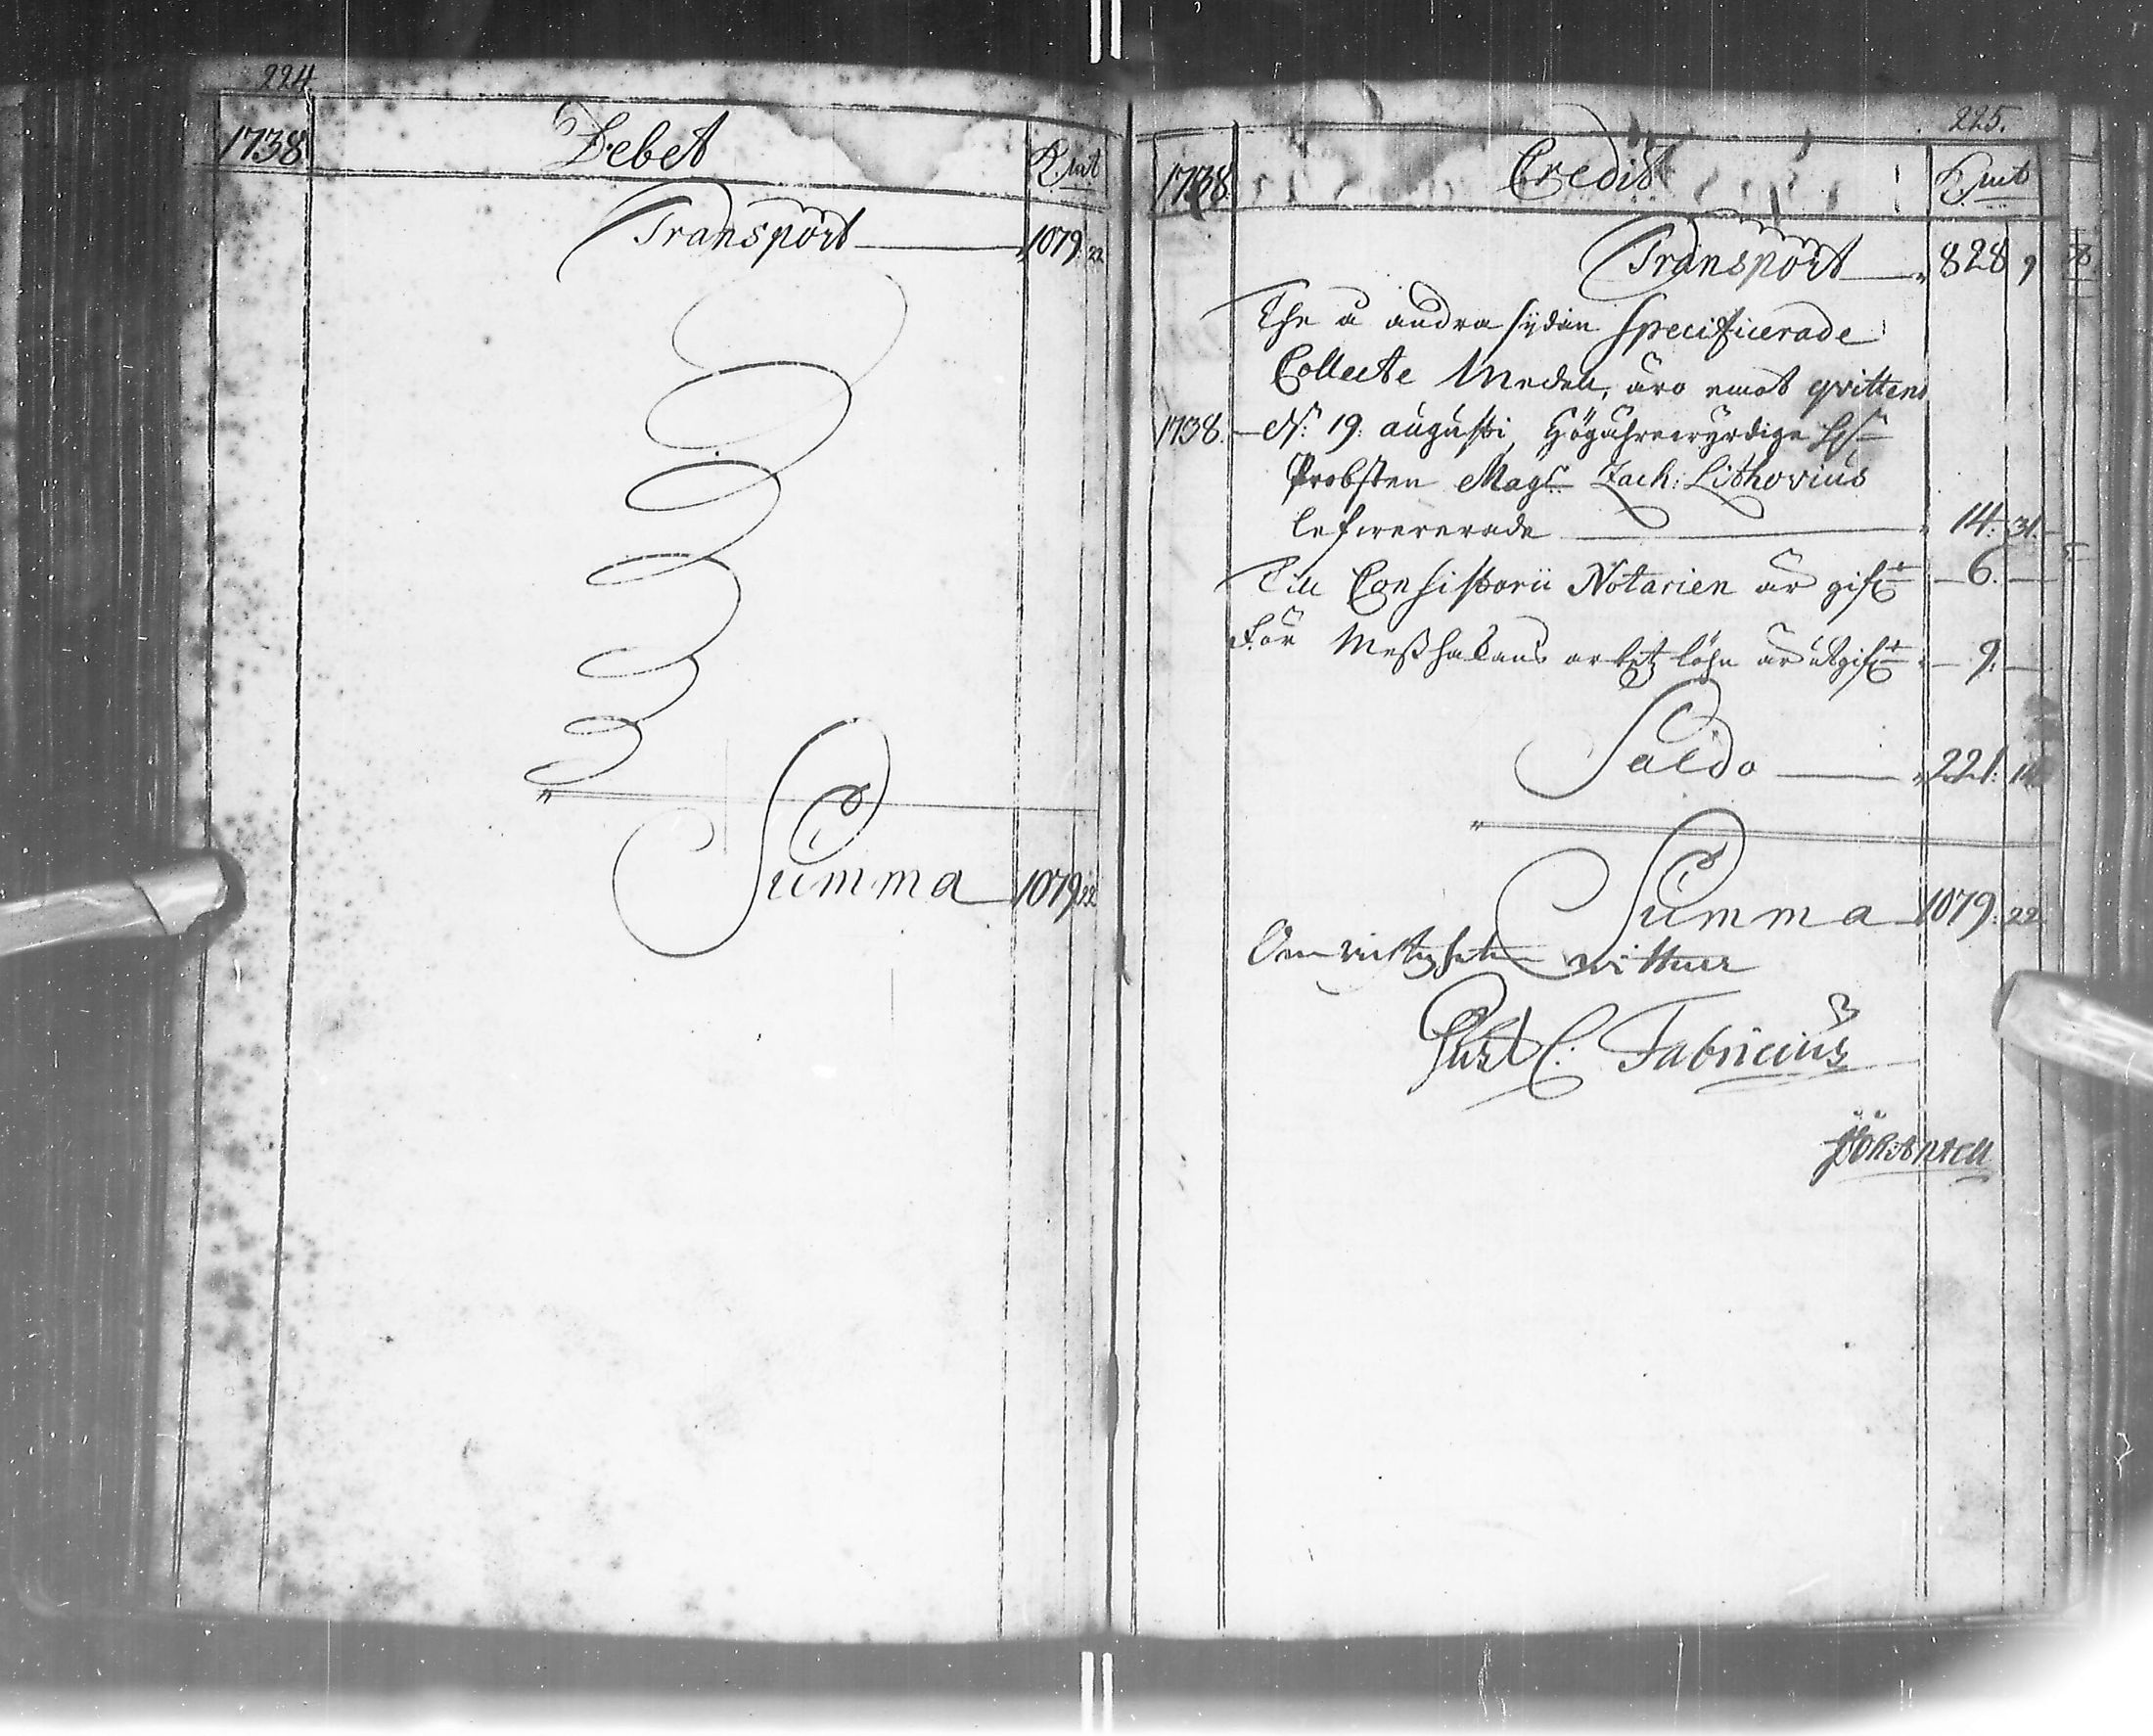 224
1738. Debet K.mt
Transport 1079: 22
Summa 1079: 22
225.
1738. Credit K.mt
Transport 828 9
The å andra sydan specificerade
Collecte Medel, äro emot qvittens
1738. 19. augusti, Högährewyrdige
Probsten Mag: Zach: Lithovius
lefwererade 14: 31.
Till Consistorii Notarien är gifit 6.
För Meßhakans arbetz löhn är utgifit 9.
Saldo 221: 14
Summa 1079: 22
Om richtigheten wittnar
Gust C: Fabricius